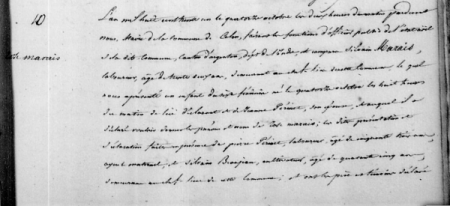 10
L'an mil huit cent trente un le quatorze octobre les dix heures du matin pardevant
nous, Maire de la commune de Celon, faisant les fonctions d'officier public de l'état civil
de la dite commune, canton d'argenton, dépt de l'indre, est comparu Silvain Marais,
marais
laboureur, âgé de trente six ans, demeurant au chef lieu de cette commune, le quel
nous a présenté un enfant du sexe féminin né le quatorze octobre les huit heures
du matin de lui déclarant et de Jeanne, son épouse, et auquel il a
déclaré vouloir donner le prénom et nom de marais; les dites présentation et
déclaration faites en présence de pierre, laboureur, âgé de cinquante trois ans,
et Silvain, cultivateur, âgé de quarante cinq ans,
demeurant au chef lieu de cette commune; et ont les père et témoins déclaré